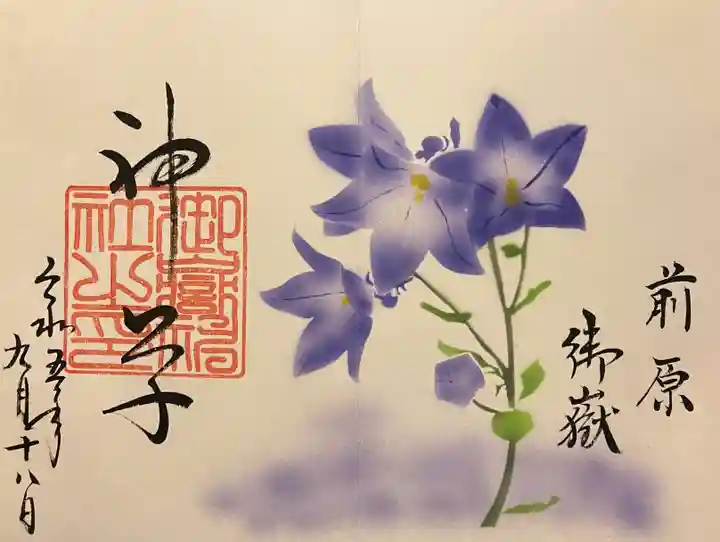 前原
御嶽
神
御嶽神
社之印
令和五年
九月十八日